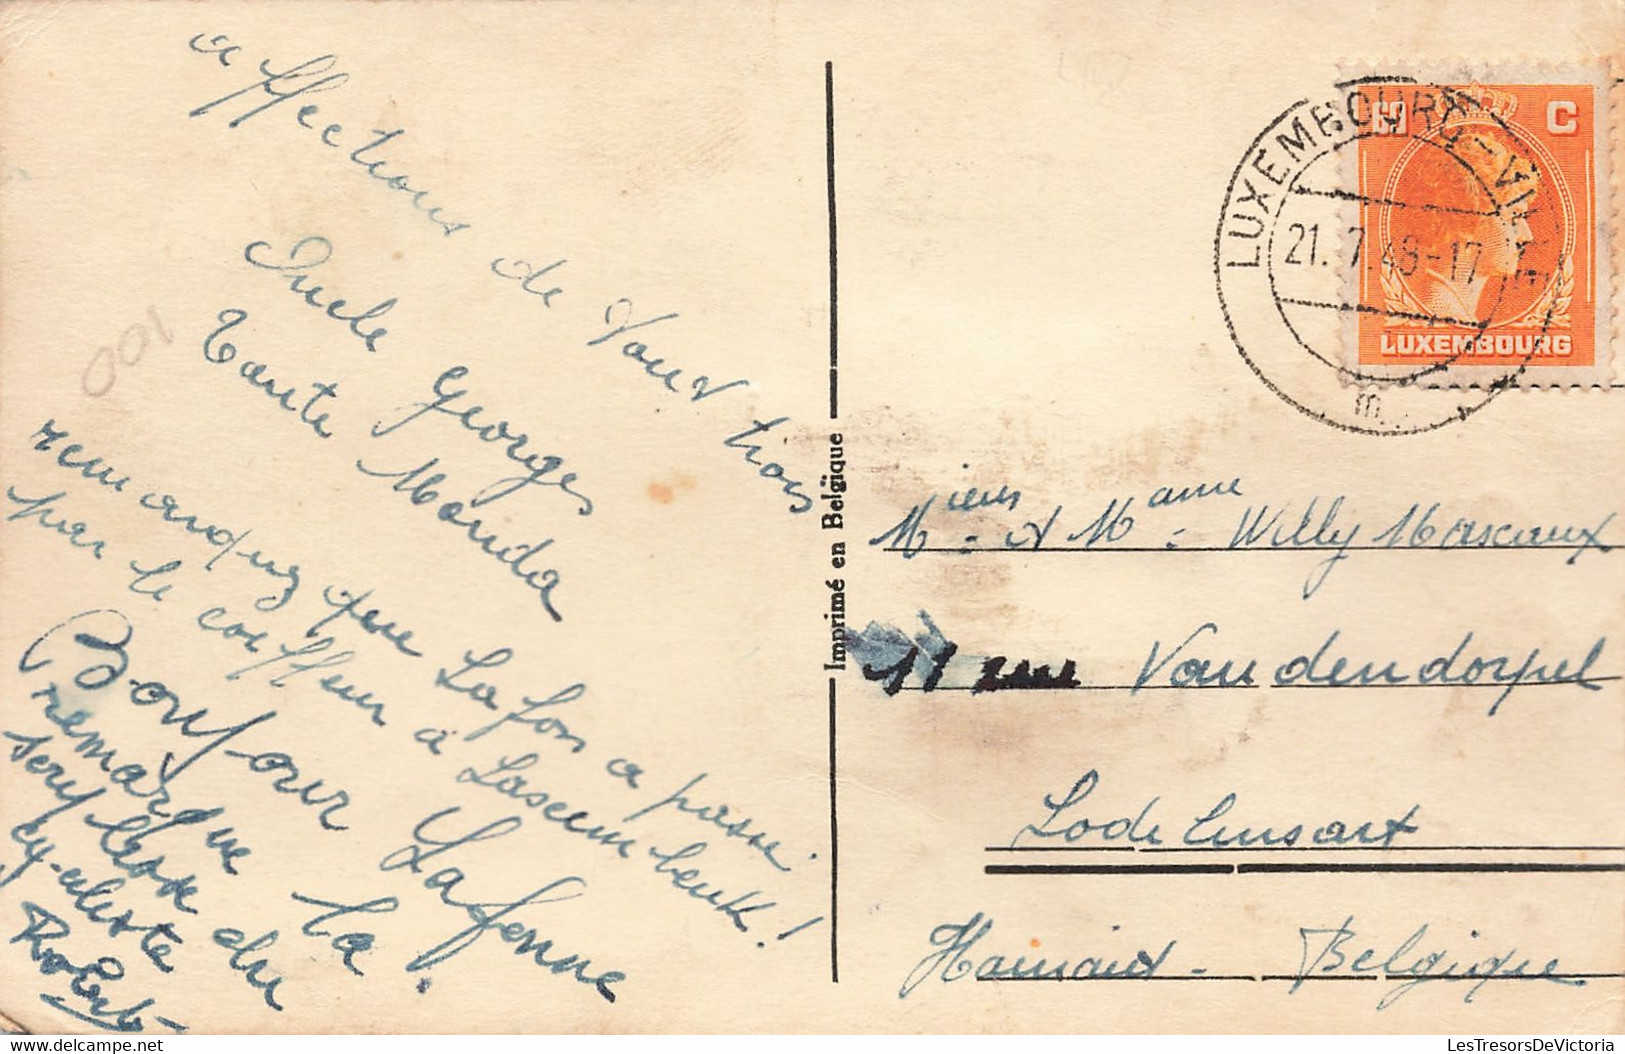 affections de Vous trois
Oncle Georges
Tante Manda
remarquez que La fon a passé
par le coiffeur à Lascembeuk!
Bonjour Lafonne
remarque la
sery
cy-aliste
Robert
001
Imprimé en Belgique
LUXEMBOURG-VILLE
21.7.48-17
m
60 C
LUXEMBOURG
Mieurs. & Mame. Willy Mascaux
11 rue Vandendorpel
Lodelinsart
Hainaut - Belgique
delcampe.net
LesTresorsDeVictoria